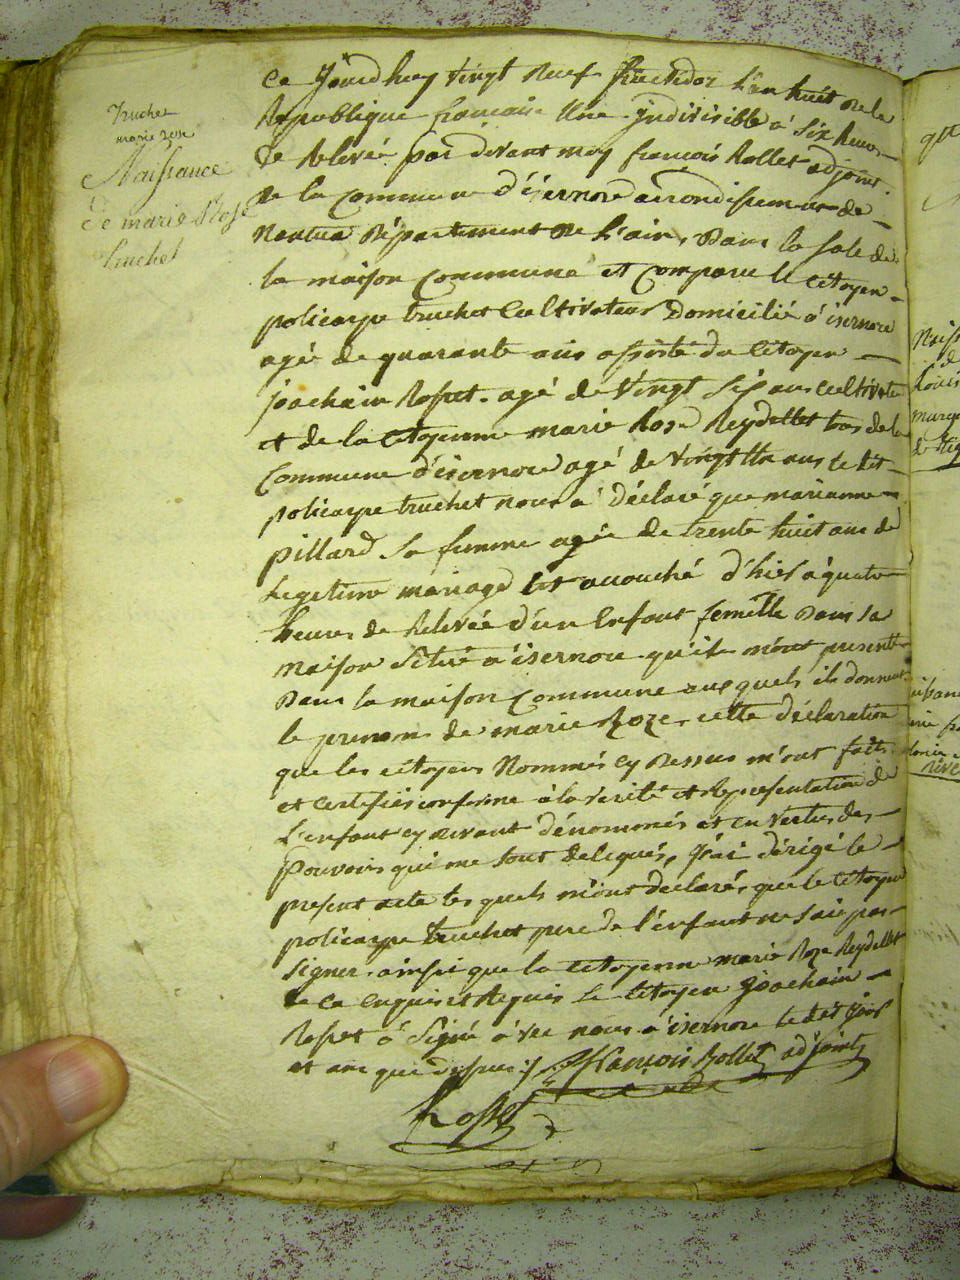 Truchet
marie rose
Naissance
de marie Rose
truchet
Ce Jourdhuy vingt neuf fructidor l'an huit de la
Republique francaise Une indivisible à six heures
de Relevée par divant moy françois Rollet adjoint
de la Commune d'isernore arrondissement de
Nantua département de L'ain, Dans la sale de
la maison Commune et Comparu le Citoyen
policarpe truchet Cultivateur Domicilié à isernore
agé de quarante ans assisté du Citoyen
joachain Rosset agé de vingt six ans Cultivate
et de la Citoyenne marie Rose Reydellet tous de la
Commune d'isernore agé de vingt un ans le dit
policarpe truchet nous à déclaré que marianne
pillard sa femme agée de trente huit ans de
Legetime mariage est acouché d'hier à quatre
heures de Relevée d'un Enfant femelle Dans sa
maison Situé à isernore qu'ils m'ont presenté
Dans la maison Commune auquels ils donnent
le prenom de marie Roze, cette déclaration
que les citoyens Nommés cy dessus m'ont faits
et Certifiés conforme à la verité et Representation de
L'enfant cy devant dénommés et en vertus des
Pouvoirs qui me sont delegués, J'ai dérigé le
present acte les quels m'ont declarés que le Citoyen
policarpe truchet pere de l'enfant ne saie pas
signer ainssi que la Citoyenne marie Roze Reydellet
de ce enquis et Requis le Citoyen Joachain
Rosset à Signé àvec nous à isernore le dit jour
et an que dessus ./. françois Rollet adjoint
Rosset